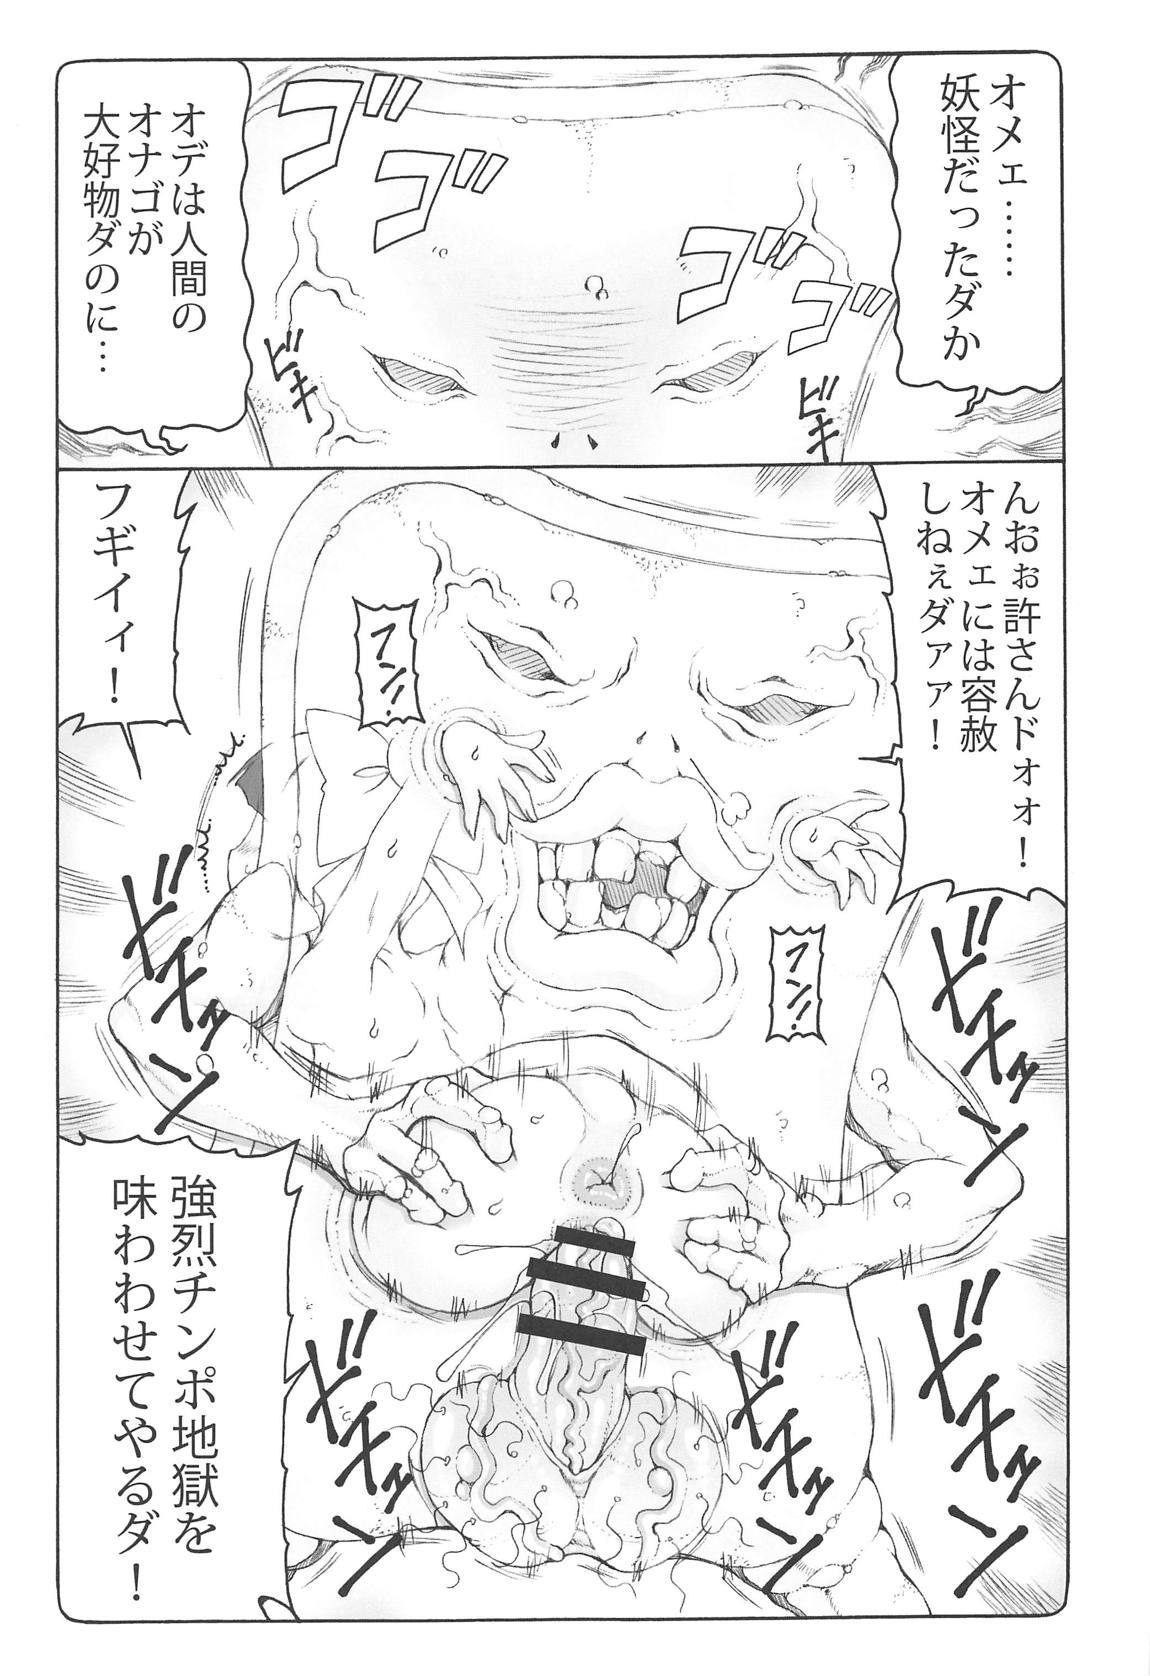 オメェ……
妖怪だったダか
ゴゴゴゴ
オデは人間の
オナゴが
大好物ダのに…
ビキ
ビキ
んおぉ許さんドォォ！
オメェには容赦
しねぇダァァ！
フン！
フン！
フギイィ！
ドチュッン
ドチュッン
ドチュッン
ドチュッン
強烈チンポ地獄を
味わわせてやるダ！